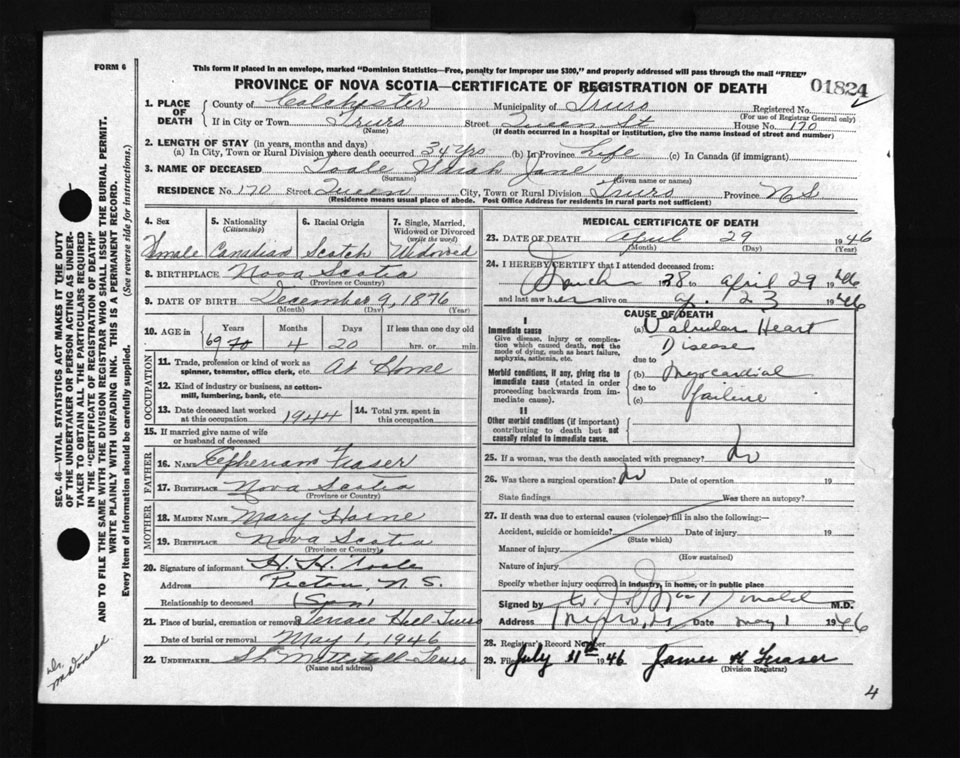 FORM 6
This form if placed in an envelope, marked "Dominion Statistics—Free, penalty for improper use $300," and properly addressed will pass through the mail "FREE"
PROVINCE OF NOVA SCOTIA—CERTIFICATE OF REGISTRATION OF DEATH
01824
1. PLACE OF DEATH
County of Colchester Municipality of Truro Registered No.
(For use of Registrar General only)
If in City or Town Truro Street Queen St House No. 170
(Name) (If death occurred in a hospital or institution, give the name instead of street and number)
2. LENGTH OF STAY (in years, months and days)
(a) In City, Town or Rural Division where death occurred 34 yrs (b) In Province Life (c) In Canada (if immigrant)
3. NAME OF DECEASED Toole Sarah Jane
(Surname) (Given name or names)
RESIDENCE No. 170 Street Queen City, Town or Rural Division Truro Province N S
(Residence means usual place of abode. Post Office Address for residents in rural parts not sufficient)
4. Sex
Female
5. Nationality (Citizenship)
Canadian
6. Racial Origin
Scotch
7. Single, Married, Widowed or Divorced (write the word)
Widowed
8. BIRTHPLACE Nova Scotia
(Province or Country)
9. DATE OF BIRTH December 9, 1876
(Month) (Day) (Year)
10. AGE in Years Months Days If less than one day old
69 70 4 20 hrs. or min
OCCUPATION
11. Trade, profession or kind of work as spinner, teamster, office clerk, etc. At Home
12. Kind of industry or business, as cotton-mill, lumbering, bank, etc.
13. Date deceased last worked at this occupation 1944
14. Total yrs. spent in this occupation
15. If married give name of wife or husband of deceased
FATHER
16. NAME Fraser
17. BIRTHPLACE Nova Scotia
(Province or Country)
MOTHER
18. MAIDEN NAME Mary Horne
19. BIRTHPLACE Nova Scotia
(Province or Country)
20. Signature of informant H. H. Toole
Address Pictou N. S.
Relationship to deceased (Son)
21. Place of burial, cremation or removal Terrace Hill Truro
Date of burial or removal May 1, 1946
22. UNDERTAKER Truro
(Name and address)
MEDICAL CERTIFICATE OF DEATH
23. DATE OF DEATH April 29 1946
(Month) (Day) (Year)
24. I HEREBY CERTIFY that I attended deceased from:
March 1938 to April 29 1946
and last saw her alive on Ap. 23 1946
CAUSE OF DEATH
I
Immediate cause
Give disease, injury or complication which caused death, not the mode of dying, such as heart failure, asphyxia, asthenia, etc.
(a) Valvular Heart
Disease
due to
Morbid conditions, if any, giving rise to immediate cause (stated in order proceeding backwards from immediate cause).
(b) Myocardial
due to
(c) failure
II
Other morbid conditions (if important) contributing to death but not causally related to immediate cause.
25. If a woman, was the death associated with pregnancy? No
26. Was there a surgical operation? No Date of operation 19
State findings Was there an autopsy?
27. If death was due to external causes (violence) fill in also the following:—
Accident, suicide or homicide? Date of injury 19
(State which)
Manner of injury
(How sustained)
Nature of injury
Specify whether injury occurred in industry, in home, or in public place
Signed by MacDonald M.D.
Address Truro, NS Date May 1 1946
28. Registrar's Record Number
29. Filed July 11th 1946 James H Fraser
(Division Registrar)
SEC. 46—VITAL STATISTICS ACT MAKES IT THE DUTY
OF THE UNDERTAKER OR PERSON ACTING AS UNDER-
TAKER TO OBTAIN ALL THE PARTICULARS REQUIRED
IN THE "CERTIFICATE OF REGISTRATION OF DEATH"
AND TO FILE THE SAME WITH THE DIVISION REGISTRAR WHO SHALL ISSUE THE BURIAL PERMIT.
WRITE PLAINLY WITH UNFADING INK. THIS IS A PERMANENT RECORD.
Every item of information should be carefully supplied. (See reverse side for instructions.)
Dr. McDonald
4